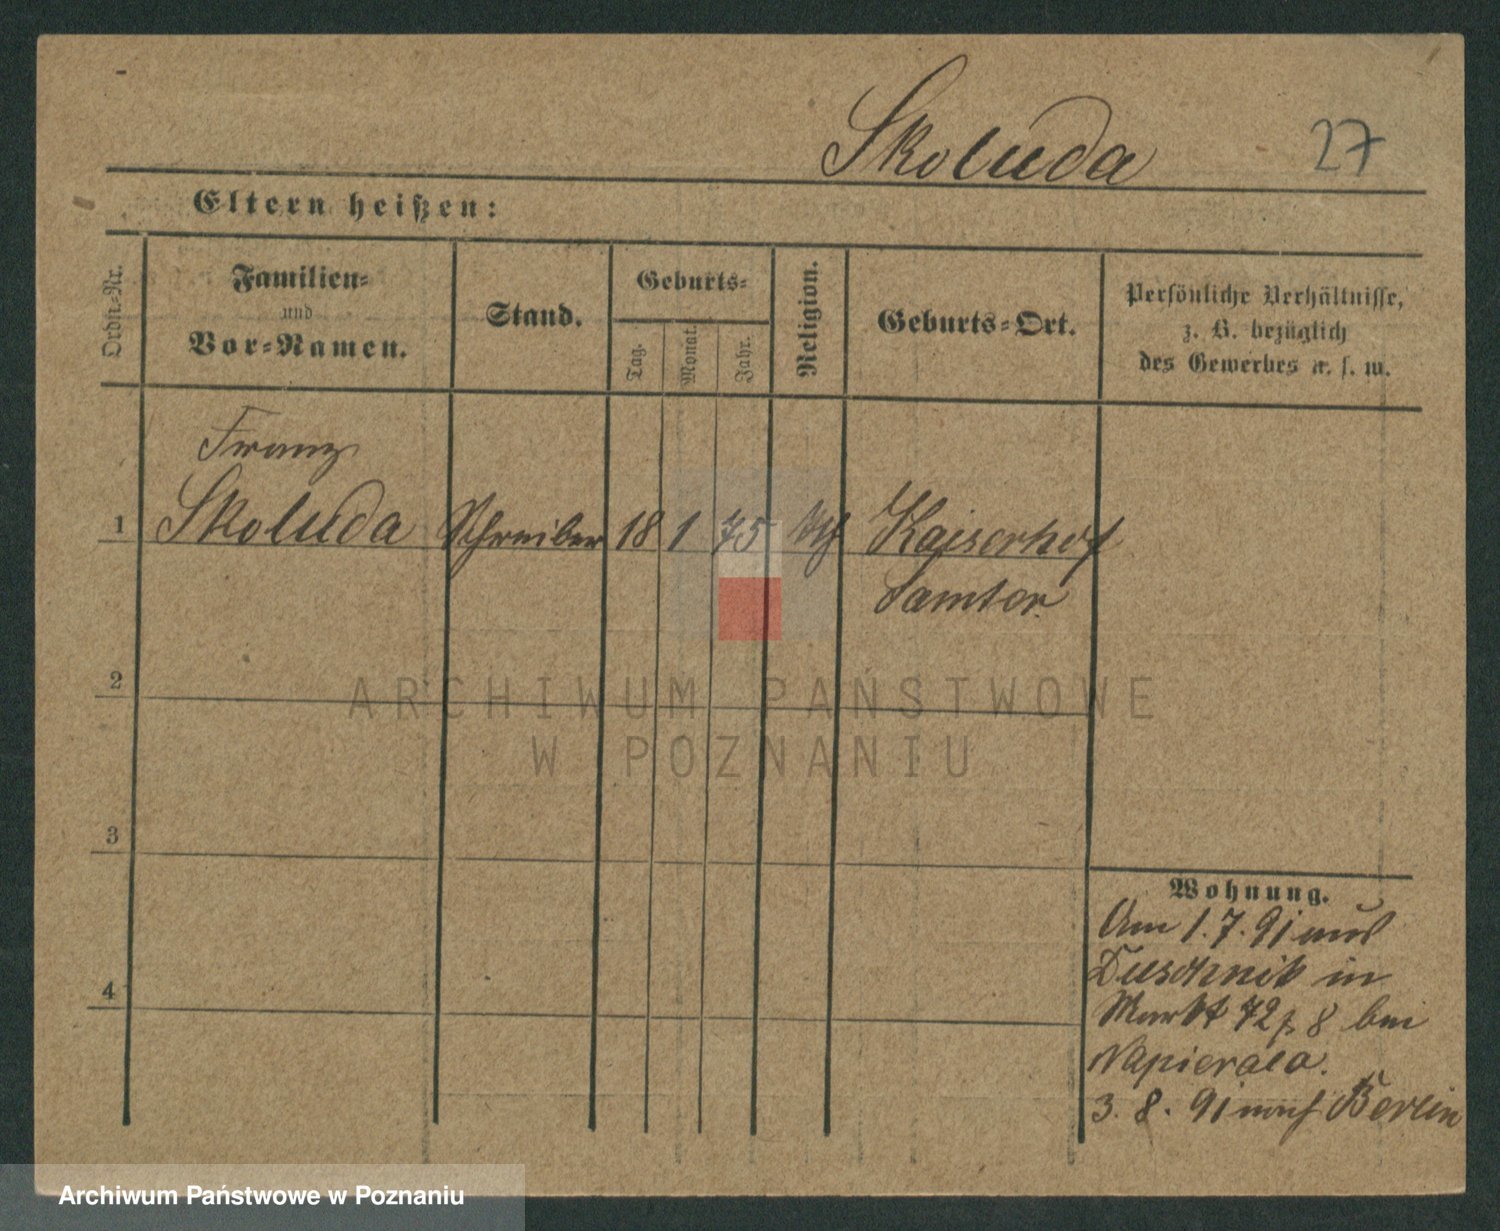 Skoluda
27
Eltern heißen:
Ordn.-Nr.
Familien-
und
Vor-Namen.
Stand.
Geburts-
Tag.
Monat.
Jahr.
Religion.
Geburts-Ort.
Persönliche Verhältnisse,
z. B. bezüglich
des Gewerbes u. s. w.
Franz
1 Skoluda Schreiber 18 1 75 Kaiserhof
Samter
2
ARCHIWUM PAŃSTWOWE
W POZNANIU
3
Wohnung.
Am 1.7.91 aus
Duschnik in
4
Markt 72 8 bei
Napierala.
3. 8. 91 nach Berlin
Archiwum Państwowe w Poznaniu